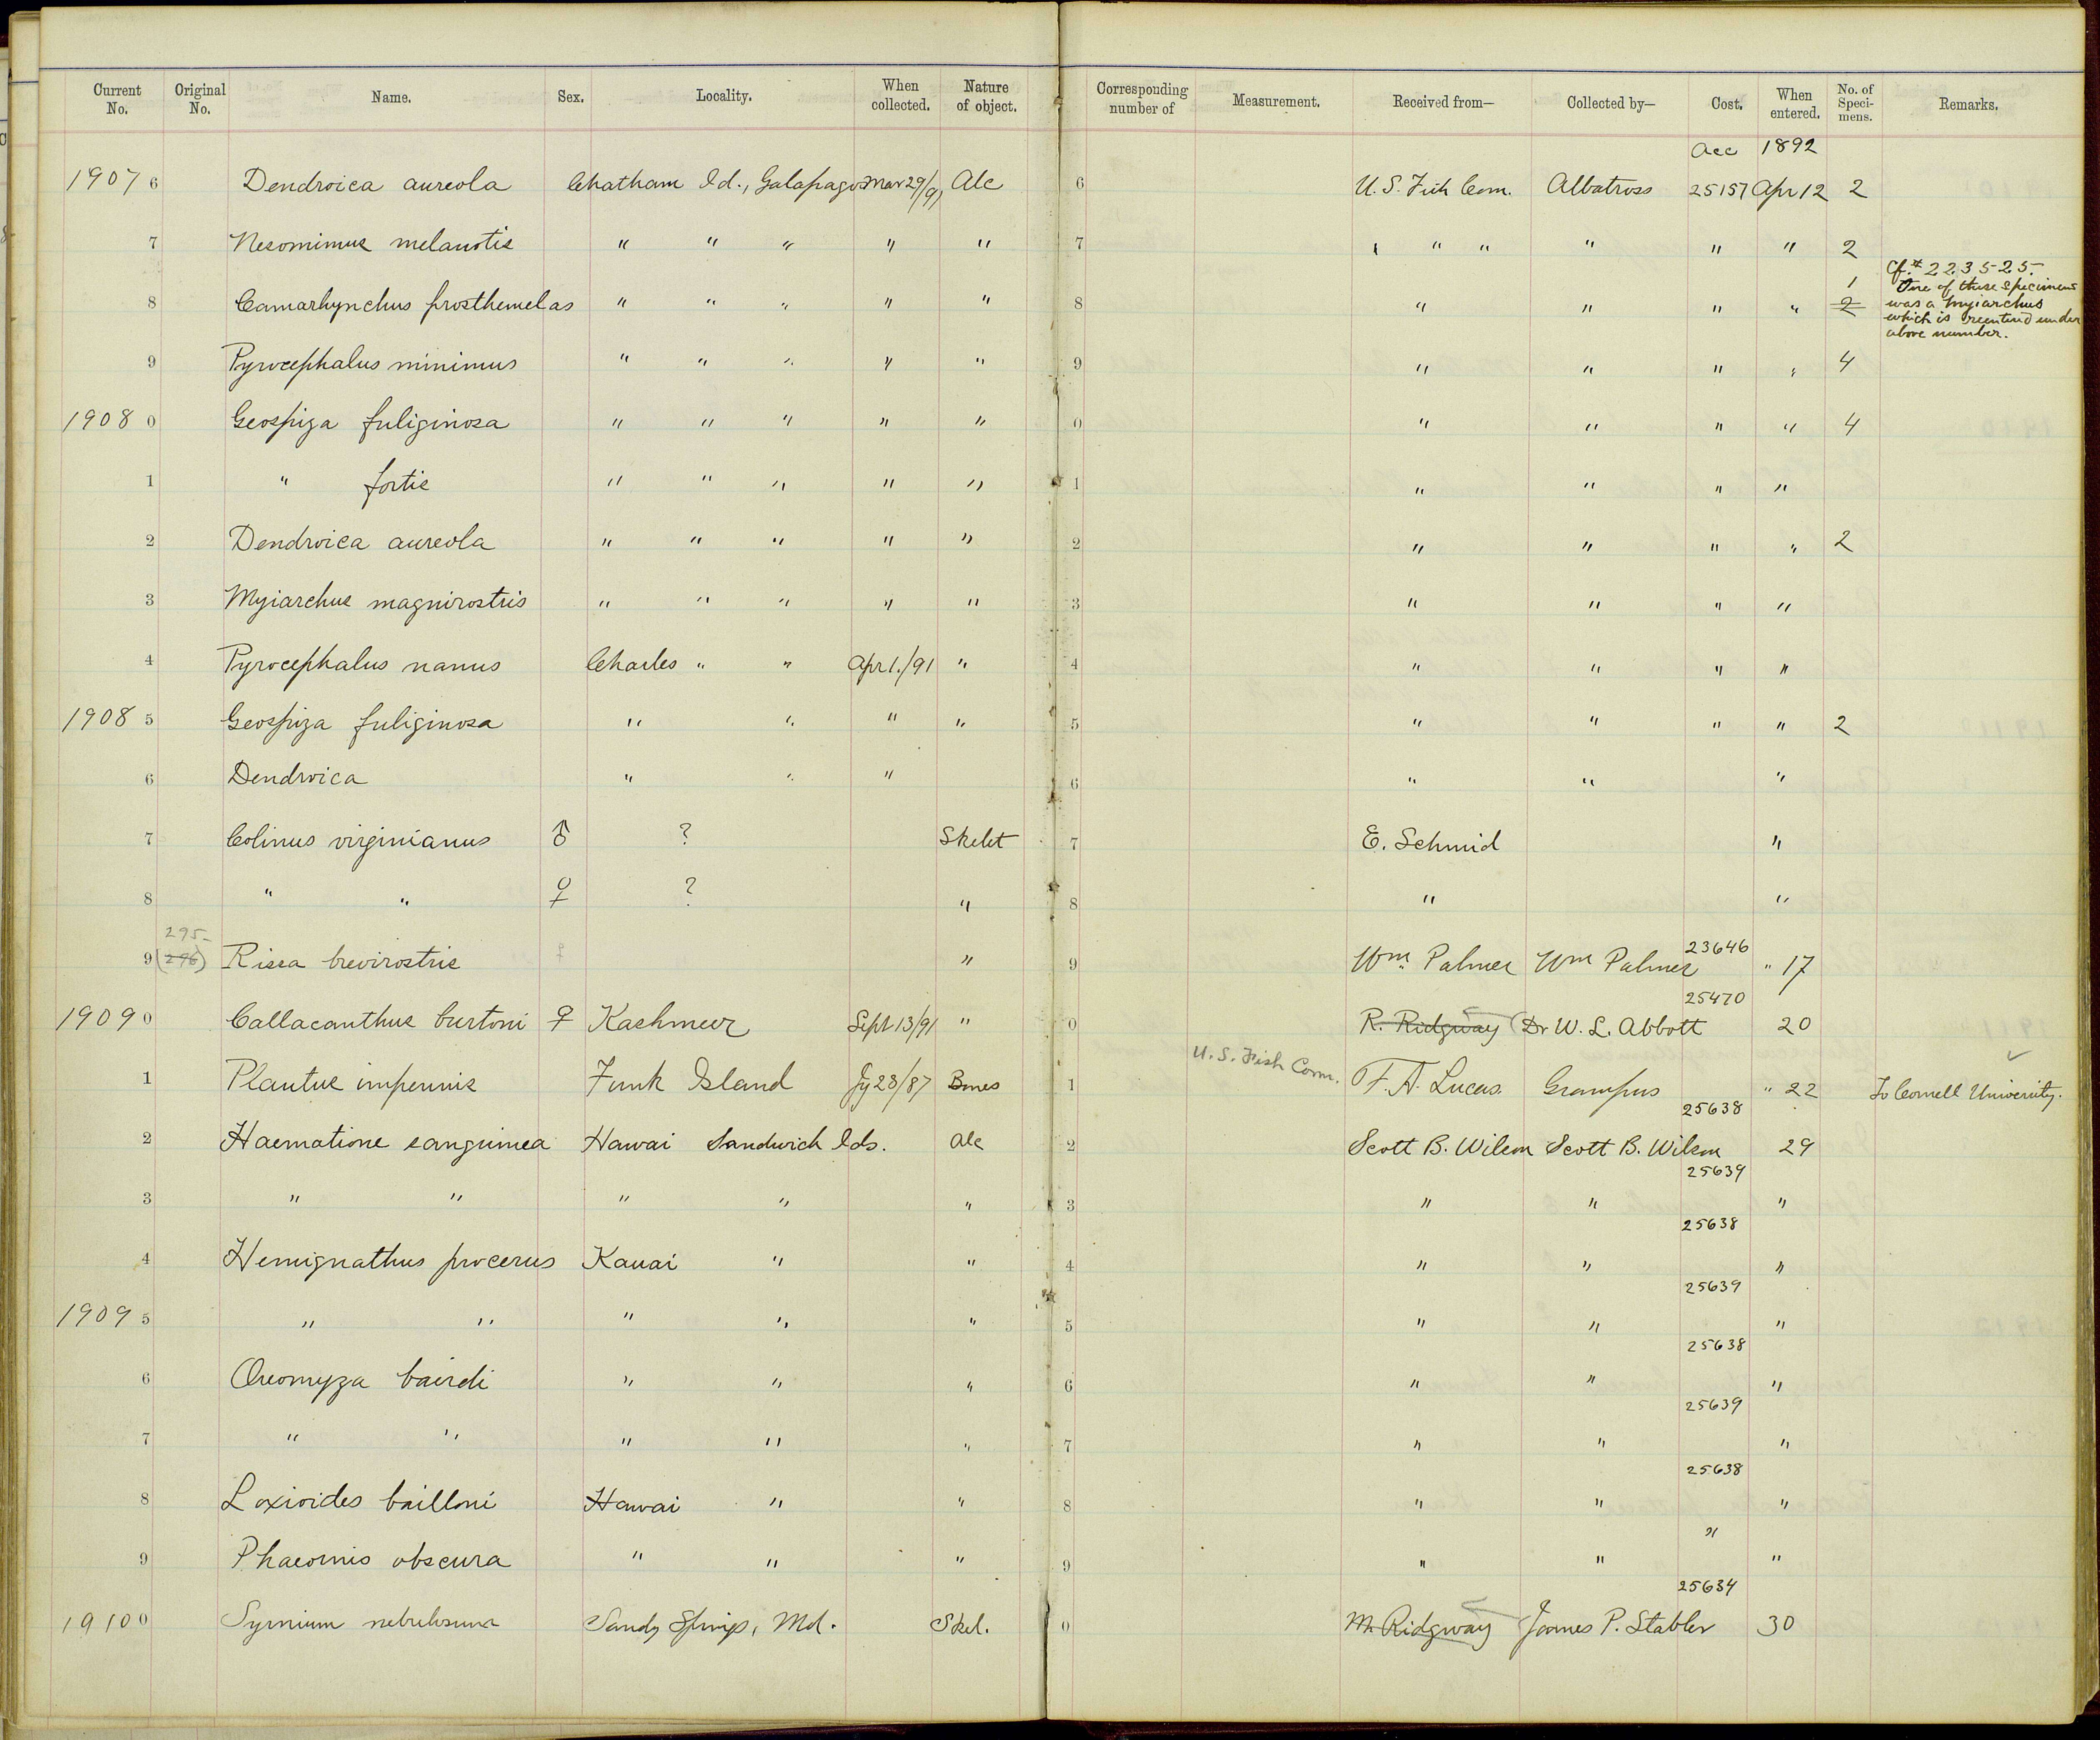 Current No. Original No. Name. Sex. Locality. When collected. Nature of object. Corresponding number of Measurement. Received from— Collected by— Cost. When entered. No. of Specimens. Remarks.
Acc 1892
1907 6 Dendroica aureola Chatham Id., Galapagos Mar 29/91 Alc 6 U.S. Fish Com. Albatross 25157 Apr 12 2
7 Nesomimus melanotis " " " " " 7 " " " " " " 2
Cf. # 223525.
One of these specimens
was a Myiarchus
which is reentered under
above number.
8 Camarhynchus prosthemelas " " " " " 8 " " " " 1 2
9 Pyrocephalus minimus " " " " " 9 " " " " 4
1908 0 Geospiza fuliginosa " " " " " 0 " " " " 4
1 " fortis " " " " " 1 " " " "
2 Dendroica aureola " " " " " 2 " " " " 2
3 Myiarchus magnirostris " " " " " 3 " " " "
4 Pyrocephalus nanus Charles " " Apr 1./91 " 4 " " " "
1908 5 Geospiza fuliginosa " " " " 5 " " " " 2
6 Dendroica " " " 6 " " "
7 Colinus virginianus ♂ ? Skelet 7 E. Schmid "
8 " " ♀ ? " 8 " "
295
9 (296) Rissa brevirostris ♀ " 9 Wm Palmer Wm Palmer 23646 " 17
1909 0 Callacanthus burtoni ♀ Kashmeer Sept 13/91 " 0 R. Ridgway (Dr W. L. Abbott 25470 20
1 Plautus impennis Funk Island Jy 23/87 Bones 1 U.S. Fish Com. F. A. Lucas. Grampus " 22 ✓ To Cornell University.
2 Haematione sanguinea Hawai Sandwich Ids. Alc 2 Scott B. Wilson Scott B. Wilson 25638 29
3 " " " " " 3 " " 25639 "
4 Hemignathus procerus Kauai " " 4 " " 25638 "
1909 5 " " " " " 5 " " 25639 "
6 Oreomyza bairdi " " " 6 " " 25638 "
7 " " " " " 7 " " 25639 "
8 Loxioides bailloni Hawai " " 8 " " 25638 "
9 Phaeornis obscura " " " 9 " " " "
1910 0 Syrnium nebulosum Sandy Springs, Md. Skel. 0 M. Ridgway (James P. Stabler 25634 30